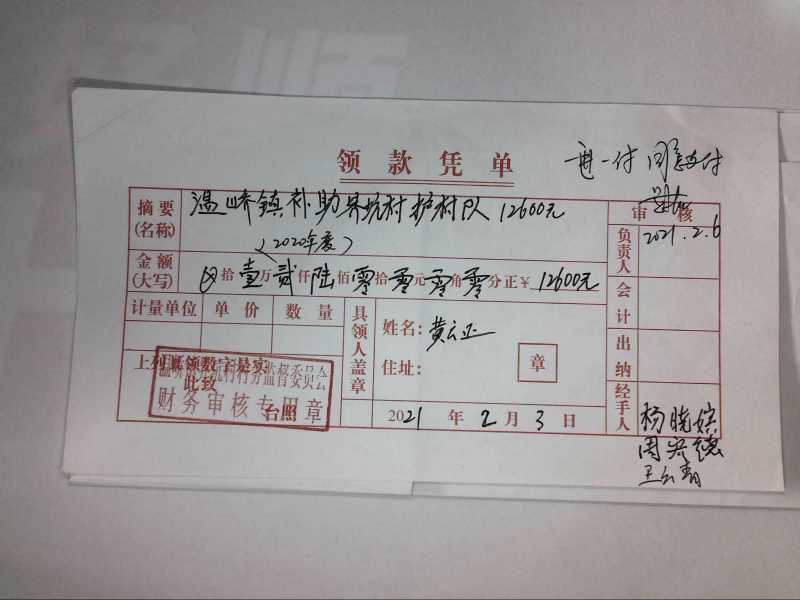 领款凭单
再一付 同意支付
摘要(名称) 温峤镇补助界坑村护村队12600元
(2020年度)
审核
负责人 2021.2.6
金额(大写) 拾壹万贰仟陆佰零拾零元零角零分正¥12600元
会计
计量单位 单价 数量
具领人盖章
姓名: 黄云正
住址:
章
出纳
上列款领数字是实
此致
台照
村务监督委员会
财务审核专用章
2021年2月3日
经手人 杨晓嫔
周兴德
王云青